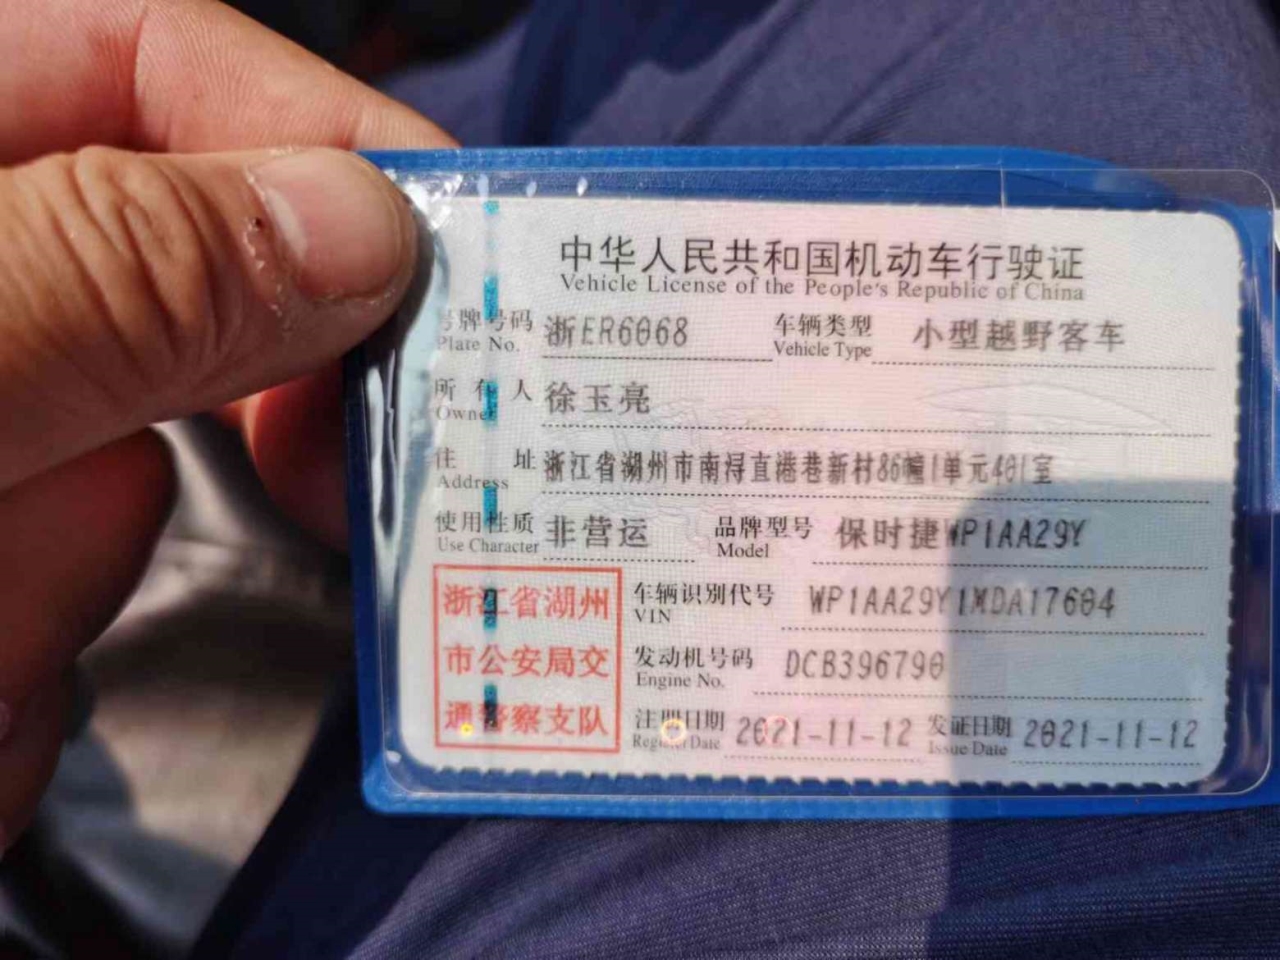 中华人民共和国机动车行驶证
Vehicle License of the People's Republic of China
号牌号码 浙ER6068 车辆类型 小型越野客车
Plate No. Vehicle Type
所有人 徐玉亮
Owner
住址 浙江省湖州市南浔直港巷新村86幢1单元401室
Address
使用性质 非营运 品牌型号 保时捷WP1AA29Y
Use Character Model
浙江省湖州
市公安局交
通警察支队
车辆识别代号 WP1AA29Y1MDA17604
VIN
发动机号码 DCB396790
Engine No.
注册日期 2021-11-12 发证日期 2021-11-12
Register Date Issue Date